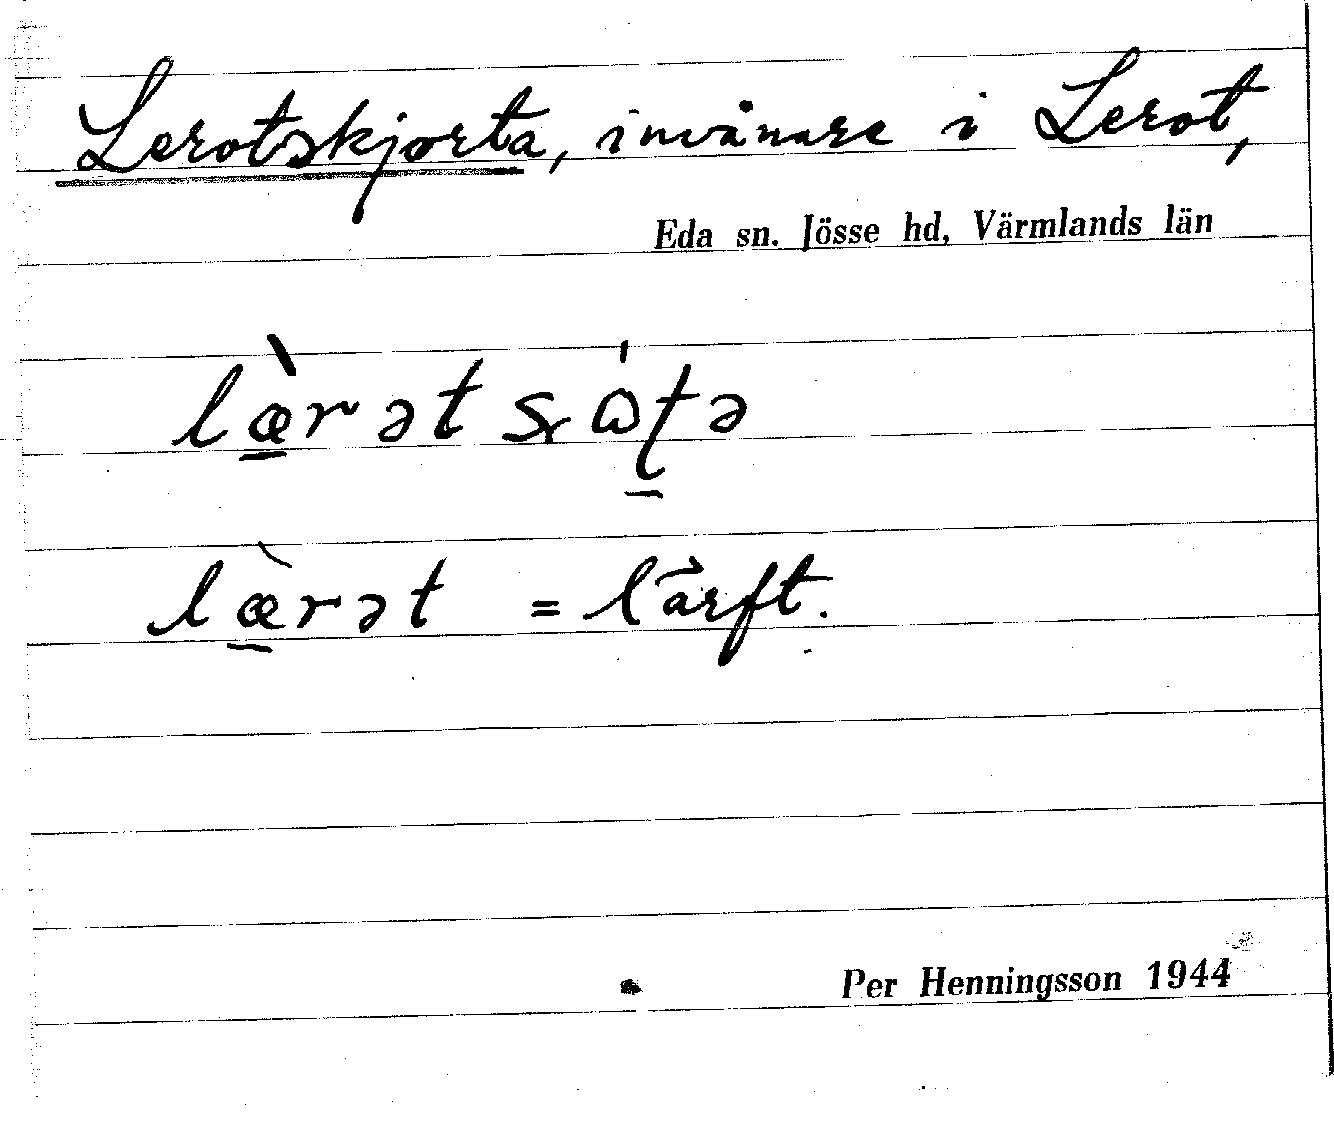 Lerotskjorta, invånare i Lerot,
Eda sn. Jösse hd, Värmlands län
læ̠̀rət
læ̠̀rət = lärft.
Per Henningsson 1944